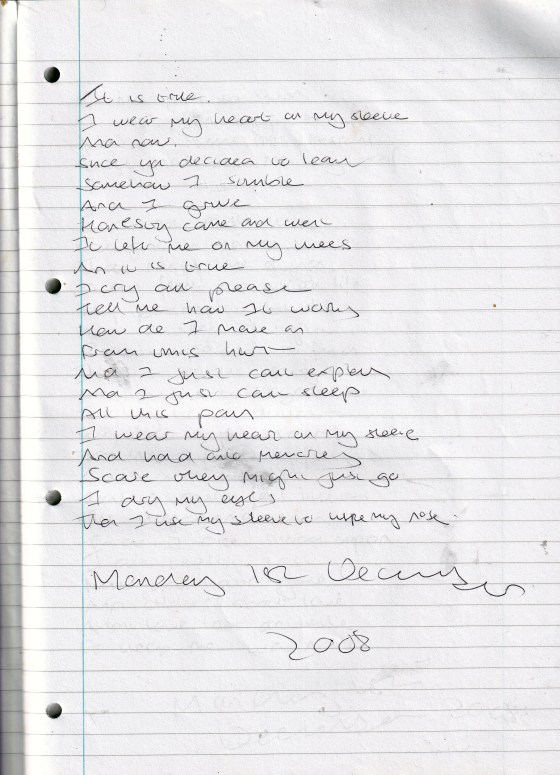 It is true.
I wear my heart on my sleeve
And now.
Since you decided to leave
Somehow I
And I grieve
Honesty came and went
It left me on my knees
An it is true
I cry out please
Tell me how It works
How do I move on
From this hurt
And I just can't explain
And I just can't sleep
All this pain
I wear my heart on my sleeve
And hold onto memories
Scare they might just go
I dry my eyes
Then I use my sleeve to wipe my nose.
Monday 1st December
2008